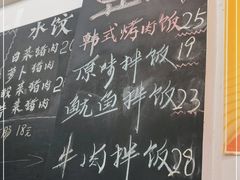 水饺
白菜猪肉2
萝卜猪肉
酸菜猪肉
菜猪肉
18元
韩式烤肉饭25
原味拌饭19
鱿鱼拌饭23
牛肉拌饭28